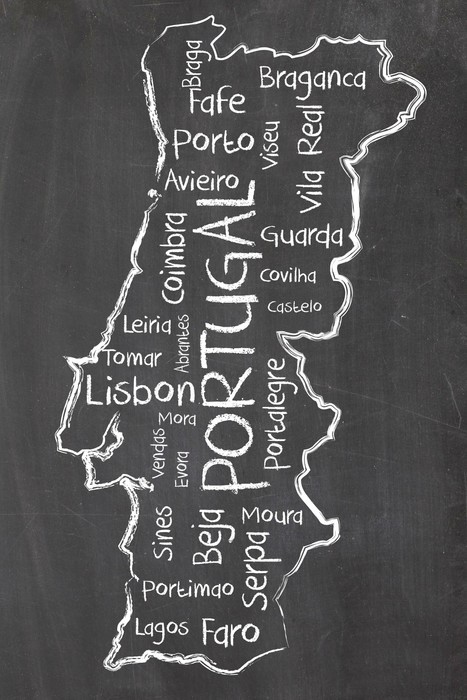 Braga
Braganca
Fafe
Porto
Viseu
Vila Real
Avieiro
Coimbra
PORTUGAL
Guarda
Covilha
Castelo
Leiria
Abrantes
Tomar
Lisbon
Portalegre
Mora
Vendas
Evora
Sines
Beja
Moura
Serpa
Portimao
Lagos
Faro